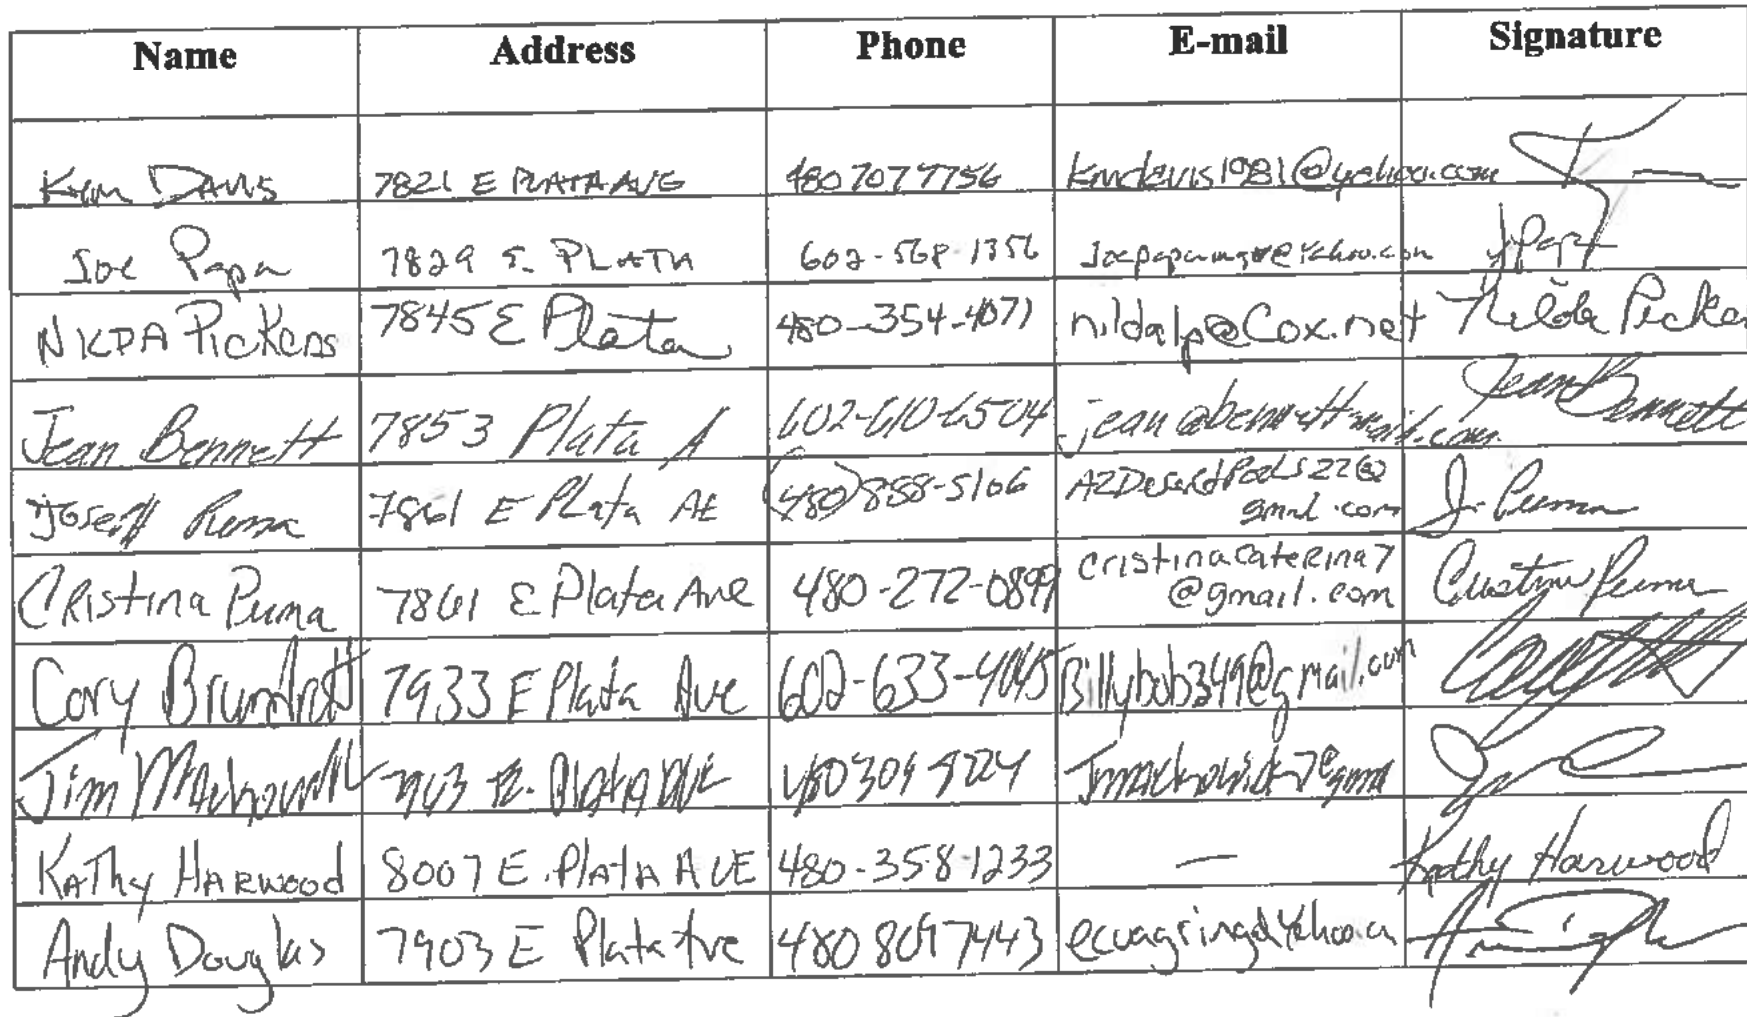 Name Address Phone E-mail Signature
Kim Davis 7821 E PLATA AVE 4807077756 kmdavis1981@yahoo.com
Joe Papa 7829 E. PLATA 602-568-1356 J Papa
NILDA Pickens 7845 E Plata 480-354-4071 nildalp@Cox.net Nilda Picke
Jean Bennett 7853 Plata A 602-610-6504 jean@bennettmail.com Jean Bennett
Joseph Puma 7861 E Plata AE (480) 888-5106 AZDesertPools22@
gmail.com J. Puma
Cristina Puma 7861 E Plata Ave 480-272-0899 cristinacaterina7
@gmail.com Cristina Puma
Cory 7933 E Plata Ave 602-633-4045 Billybob349@gmail.com
Jim E. Plata Ave
Kathy Harwood 8007 E. Plata AVE 480-358-1233 — Kathy Harwood
Andy Douglas 7903 E Plata Ave 480 8097443